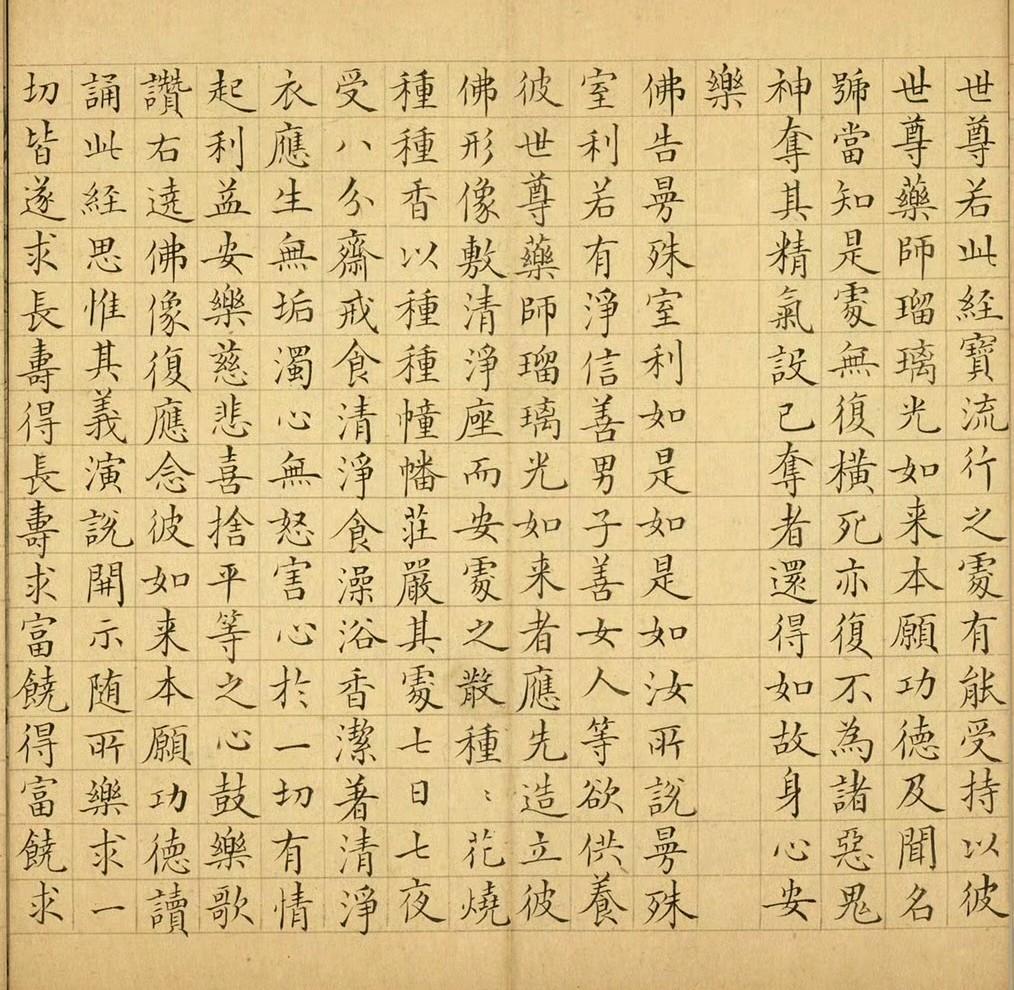 世尊若此経寶流行之處有能受持以彼
世尊藥師瑠璃光如来本願功德及聞名
號當知是處無復横死亦復不為諸惡鬼
神奪其精氣設已奪者還得如故身心安
樂
佛告曼殊室利如是如是如汝所説曼殊
室利若有淨信善男子善女人等欲供養
彼世尊藥師瑠璃光如来者應先造立彼
佛形像敷清淨座而安處之散種〻花燒
種種香以種種幢幡莊嚴其處七日七夜
受八分齋戒食清淨食澡浴香潔著清淨
衣應生無垢濁心無怒害心於一切有情
起利益安樂慈悲喜捨平等之心鼓樂歌
讚右遶佛像復應念彼如来本願功德讀
誦此経思惟其義演説開示随所樂求一
切皆遂求長壽得長壽求富饒得富饒求